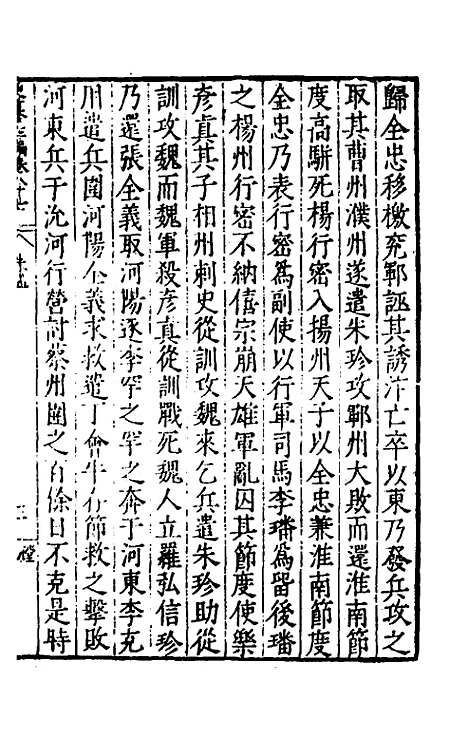 歸全忠移檄兖鄆誣其誘汴亡卒以東乃發兵攻之
取其曹州濮州遂遣朱珍攻鄆州大敗而還淮南節
度高駢死楊行密入揚州天子以全忠兼淮南節度
全忠乃表行密爲副使以行軍司馬李璠爲留後璠
之楊州行密不納僖宗崩天雄軍亂囚其節度使樂
彦真其子相州刺史從訓攻魏來乞兵遣朱珍助從
訓攻魏而魏軍殺彦真從訓戰死魏人立羅弘信珍
乃還張全義取河陽逐李罕之罕之奔于河東李克
用遣兵圍河陽全義求救遣丁會牛存節救之擊敗
河東兵于沇河行營討蔡州圍之百餘日不克是時